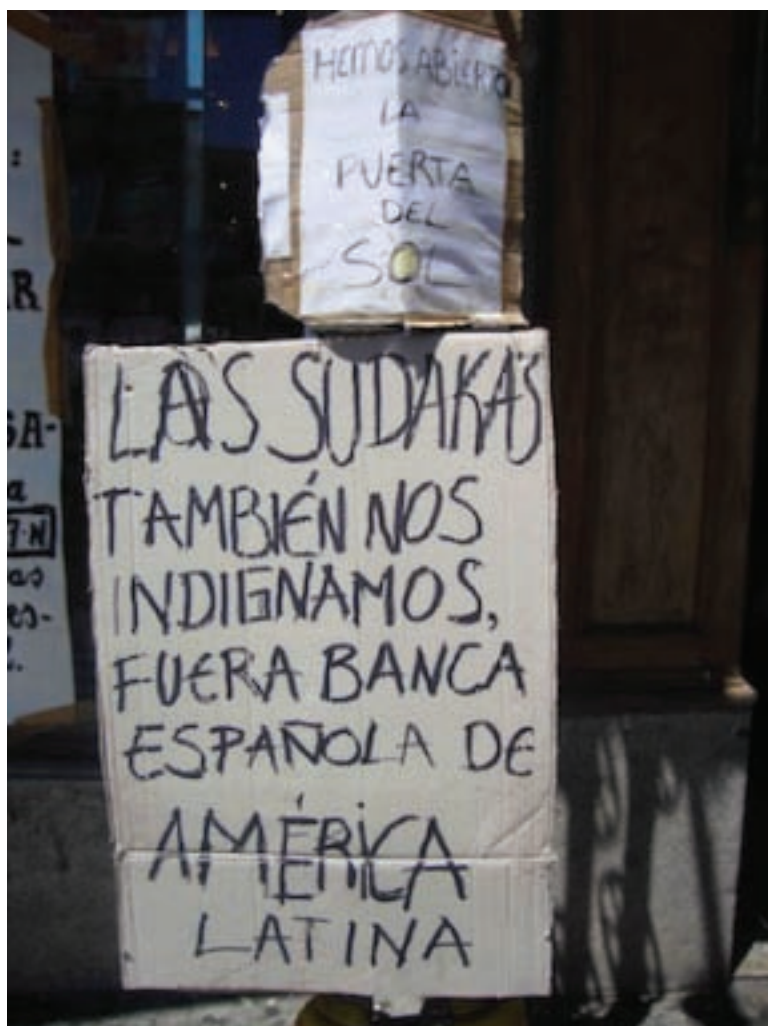 HEMOS ABIERTO
LA
PUERTA
DEL
SOL
LAS SUDAKAS
TAMBIÉN NOS
INDIGNAMOS,
FUERA BANCA
ESPAÑOLA DE
AMÉRICA
LATINA
:
R
SA-
a
7·N
as
es-